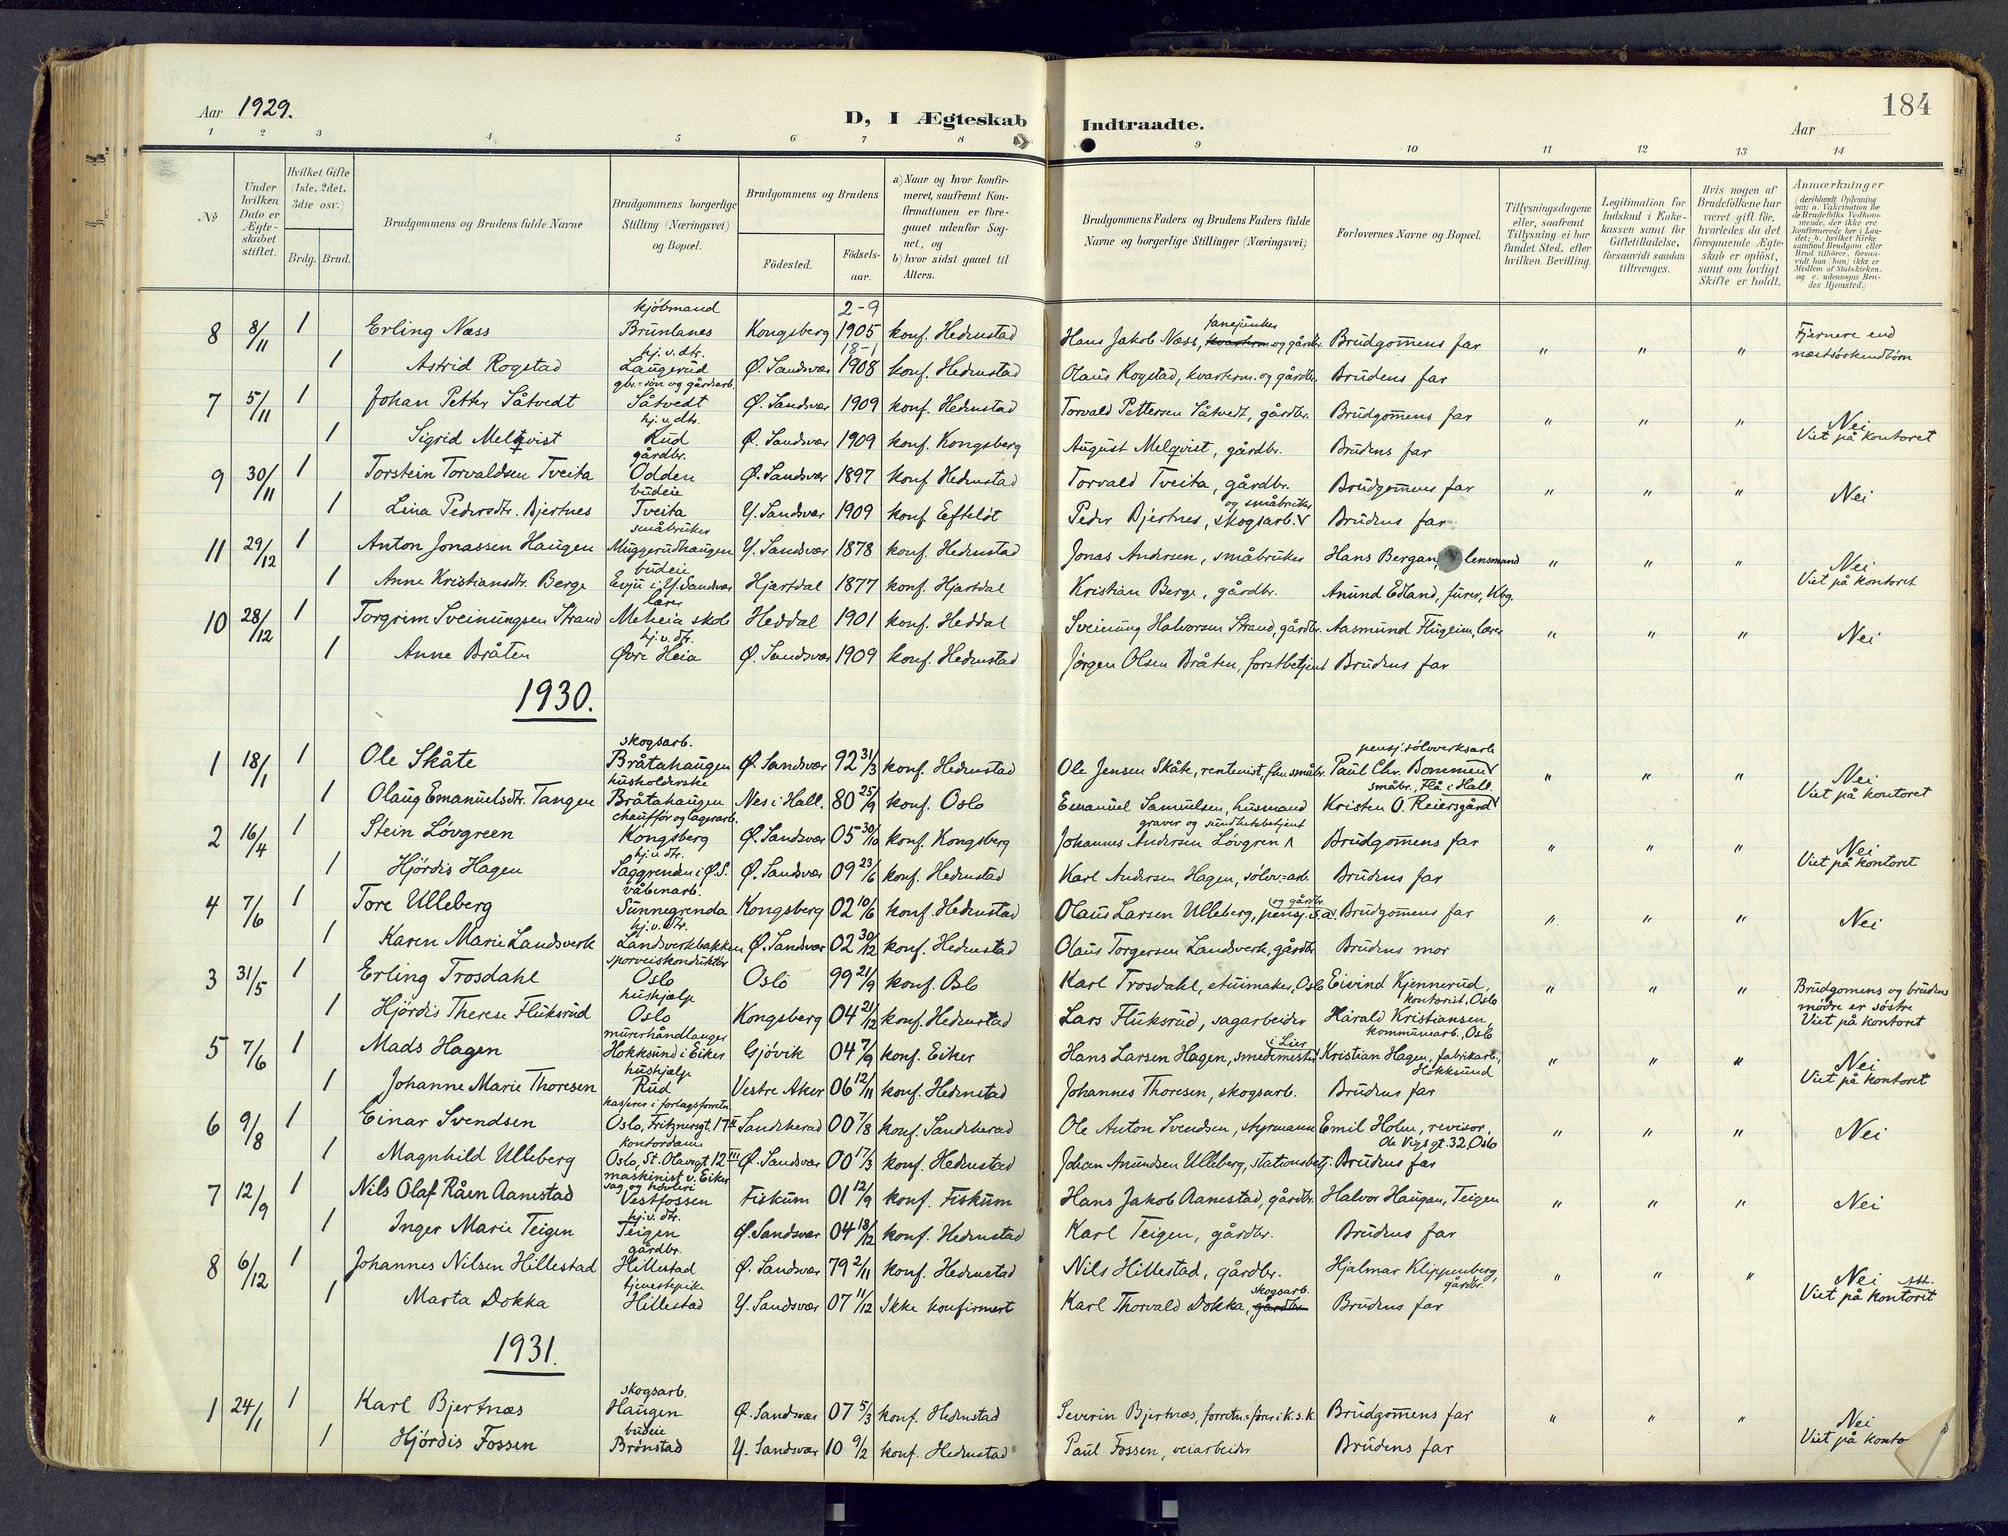 Aar 1929.
D, I Ægteskab Indtraadte.
184
Aar
1 2 3 4 5 6 7 8 9 10 11 12 13 14
No
Under hvilken Dato er Ægteskabet stiftet.
Hvilket Gifte (1ste, 2det, 3die osv.)
Brdg. Brud.
Brudgommens og Brudens fulde Navne
Brudgommens borgerlige Stilling (Næringsvei) og Bopæl.
Brudgommens og Brudens
Fødested.
Fødselsaar.
a) Naar og hvor konfirmeret, saafremt Konfirmationen er foregaaet udenfor Sognet, og
b) hvor sidst gaaet til Alters.
Brudgommens Faders og Brudens Faders fulde Navne og borgerlige Stillinger (Næringsvei)
Forlovernes Navne og Bopæl.
Tillysningsdagene eller, saafremt Tillysning ei har fundet Sted, efter hvilken Bevilling.
Legitimation for Indskud i Enkekassen samt for Giftetilladelse, forsaavidt saadan tiltrænges.
Hvis nogen af Brudefolkene har været gift før, hvorledes da det foregaaende Ægteskab er opløst, samt om lovligt Skifte er holdt.
Anmærkninger (deriblandt Oplysning om: a. Vakcination for de Brudefolks Vedkommende, der ikke ere konfirmerede her i Landet; b. hvilket Kirkesamfund Brudgom eller Brud tilhører, forsaavidt han (hun) ikke er Medlem af Statskirken, og c. udensogns Brudes Hjemsted.)
8 8/11 1 Erling Næss kjøbmand Brunlanes Kongsberg 2-9 1905 konf. Hedenstad Hans Jakob Næss, fanejunker kvarterm og gårdbr. Brudgommens far " " " Fjernere end næstsøskendbørn
1 Astrid Rogstad hj.v.dtr. Laugerud Ø. Sandsvær 18-1 1908 konf. Hedenstad Olaus Rogstad, kvarterm. og gårdbr. Brudens far
7 5/11 1 Johan Petter Såtvedt gbr.=søn og gårdsarb. Såtvedt Ø. Sandsvær 1909 konf. Hedenstad Torvald Pettersen Såtvedt, gårdbr. Brudgommens far " " " Nei Viet på kontoret
1 Sigrid Melqvist hj.v.dtr. Rud Ø. Sandsvær 1909 konf. Kongsberg August Melqvist, gårdbr. Brudens far
9 30/11 1 Torstein Torvaldsen Tveita gårdbr. Odden Ø. Sandsvær 1897 konf. Hedenstad Torvald Tveita, gårdbr. Brudgommens far " " " Nei
1 Lina Pedersdtr. Bjertnes budeie Tveita Y. Sandsvær 1909 konf. Efteløt Peder Bjertnes, skogsarb. og småbruker Brudens far
11 29/12 1 Anton Jonassen Haugen småbruker Muggerudhaugen Y. Sandsvær 1878 konf. Hedenstad Jonas Andersen, småbruker Hans Bergan, lensmand " " " Nei Viet på kontoret
1 Anne Kristiansdtr. Berge budeie Evju i Y. Sandsvær Hjartdal 1877 konf. Hjartdal Kristian Berge, gårdbr. Anund Edland, furer, Kbg.
10 28/12 1 Torgrim Sveinungsen Strand lærer Meheia skole Heddal 1901 konf. Heddal Sveinung Halvorsen Strand, gårdbr. Aasmund Flugeim, lærer " " " Nei
1 Anne Bråten hj.v.dtr. Øvre Heia Ø. Sandsvær 1909 konf. Hedenstad Jørgen Olsen Bråten, forstbetjent Brudens far
1930.
1 18/1 1 Ole Skåte skogsarb. Bråtahaugen Ø. Sandsvær 92 31/3 konf. Hedenstad Ole Jensen Skåte, rentenist, fhv. småbr. pensj. sølvverksarb. Paul Chr. Bommen " " " Nei Viet på kontoret
1 Olaug Emanuelsdtr. Tangen husholderske Bråtahaugen Nes i Hall. 80 25/9 konf. Oslo Emanuel Samuelsen, husmand småbr., Flå i Hall. Kristen O. Reiersgård
2 16/4 1 Stein Løvgreen chauffør og lagerarb. Kongsberg Ø. Sandsvær 05 30/10 konf. Kongsberg Johannes Andersen Løvgren graver og sundhetsbetjent Brudgommens far " " " Nei Viet på kontoret
1 Hjördis Hagen hj.v.dtr. Saggrenden i Ø.S. Ø. Sandsvær 09 23/6 konf. Hedenstad Karl Andersen Hagen, sølvv=arb. Brudens far
4 7/6 1 Tore Ulleberg våbenarb. Sunnegrenda Kongsberg 02 10/6 konf. Hedenstad Olaus Larsen Ulleberg, pensj. s.a. og gårdbr. Brudgommens far " " " Nei
1 Karen Marie Landsverk hj.v.dtr. Landsverkbakken Ø. Sandsvær 02 30/12 konf. Hedenstad Olaus Torgersen Landsverk, gårdbr. Brudens mor
3 31/5 1 Erling Trosdahl sporveiskonduktør Oslo Oslo 99 21/9 konf. Oslo Karl Trosdahl, etuimaker, Oslo Eivind Kjennerud, kontorist, Oslo " " " Brudgomens og brudens mødre er søstre Viet på kontoret
1 Hjördis Therese Fluksrud hushjelp Oslo Kongsberg 04 21/12 konf. Hedenstad Lars Fluksrud, sagarbeider Harald Kristiansen, kommunearb. Oslo
5 7/6 1 Mads Hagen murerhåndlanger Hokksund i Eiker Gjøvik 04 7/9 konf. Eiker Hans Larsen Hagen, smedmester i Lier Kristian Hagen, fabrikarb., Hokksund " " " Nei Viet på kontoret
1 Johanne Marie Thoresen hushjelp Rud Vestre Aker 06 12/11 konf. Hedenstad Johannes Thoresen, skogsarb. Brudens far
6 9/8 1 Einar Svendsen kasserer i forlagsforretn. Oslo, Fritznersgt. 17 II Sandeherad 00 7/8 konf. Sandeherad Ole Anton Svendsen, styrmann Emil Holm, revisor, Ole Vigs gt. 32, Oslo " " " Nei
1 Magnhild Ulleberg kontordame Oslo, St. Olavsgt. 12 III Ø. Sandsvær 00 17/3 konf. Hedenstad Johan Amundsen Ulleberg, stationsbetj. Brudens far
7 12/9 1 Nils Olaf Råen Aanestad maskinist v. Eiker sag og høvleri Vestfossen Fiskum 01 12/9 konf. Fiskum Hans Jakob Aanestad, gårdbr. Halvor Haugan, Teigen " " " Nei
1 Inger Marie Teigen hj.v.dtr. Teigen Ø. Sandsvær 04 18/12 konf. Hedenstad Karl Teigen, gårdbr. Brudens far
8 6/12 1 Johannes Nilsen Hillestad gårdbr. Hillestad Ø. Sandsvær 79 2/11 konf. Hedenstad Nils Hillestad, gårdbr. Hjalmar Klippenberg, gårdbr. " " " Nei Viet på kontoret
1 Marta Dokka tjenestepike Hillestad Y. Sandsvær 07 11/12 Ikke konfirmert Karl Thorvald Dokka, skogsarb. gårdbr. Brudens far
1931.
1 24/1 1 Karl Bjertnæs skogsarb. Haugen Ø. Sandsvær 07 5/3 konf. Hedenstad Severin Bjertnæs, forretn=fører i K.s.k. Brudgommens far " " " Nei Viet på konto
1 Hjördis Fossen budeie Brønstad Y. Sandsvær 10 9/2 konf. Hedenstad Paul Fossen, veiarbeider Brudens far